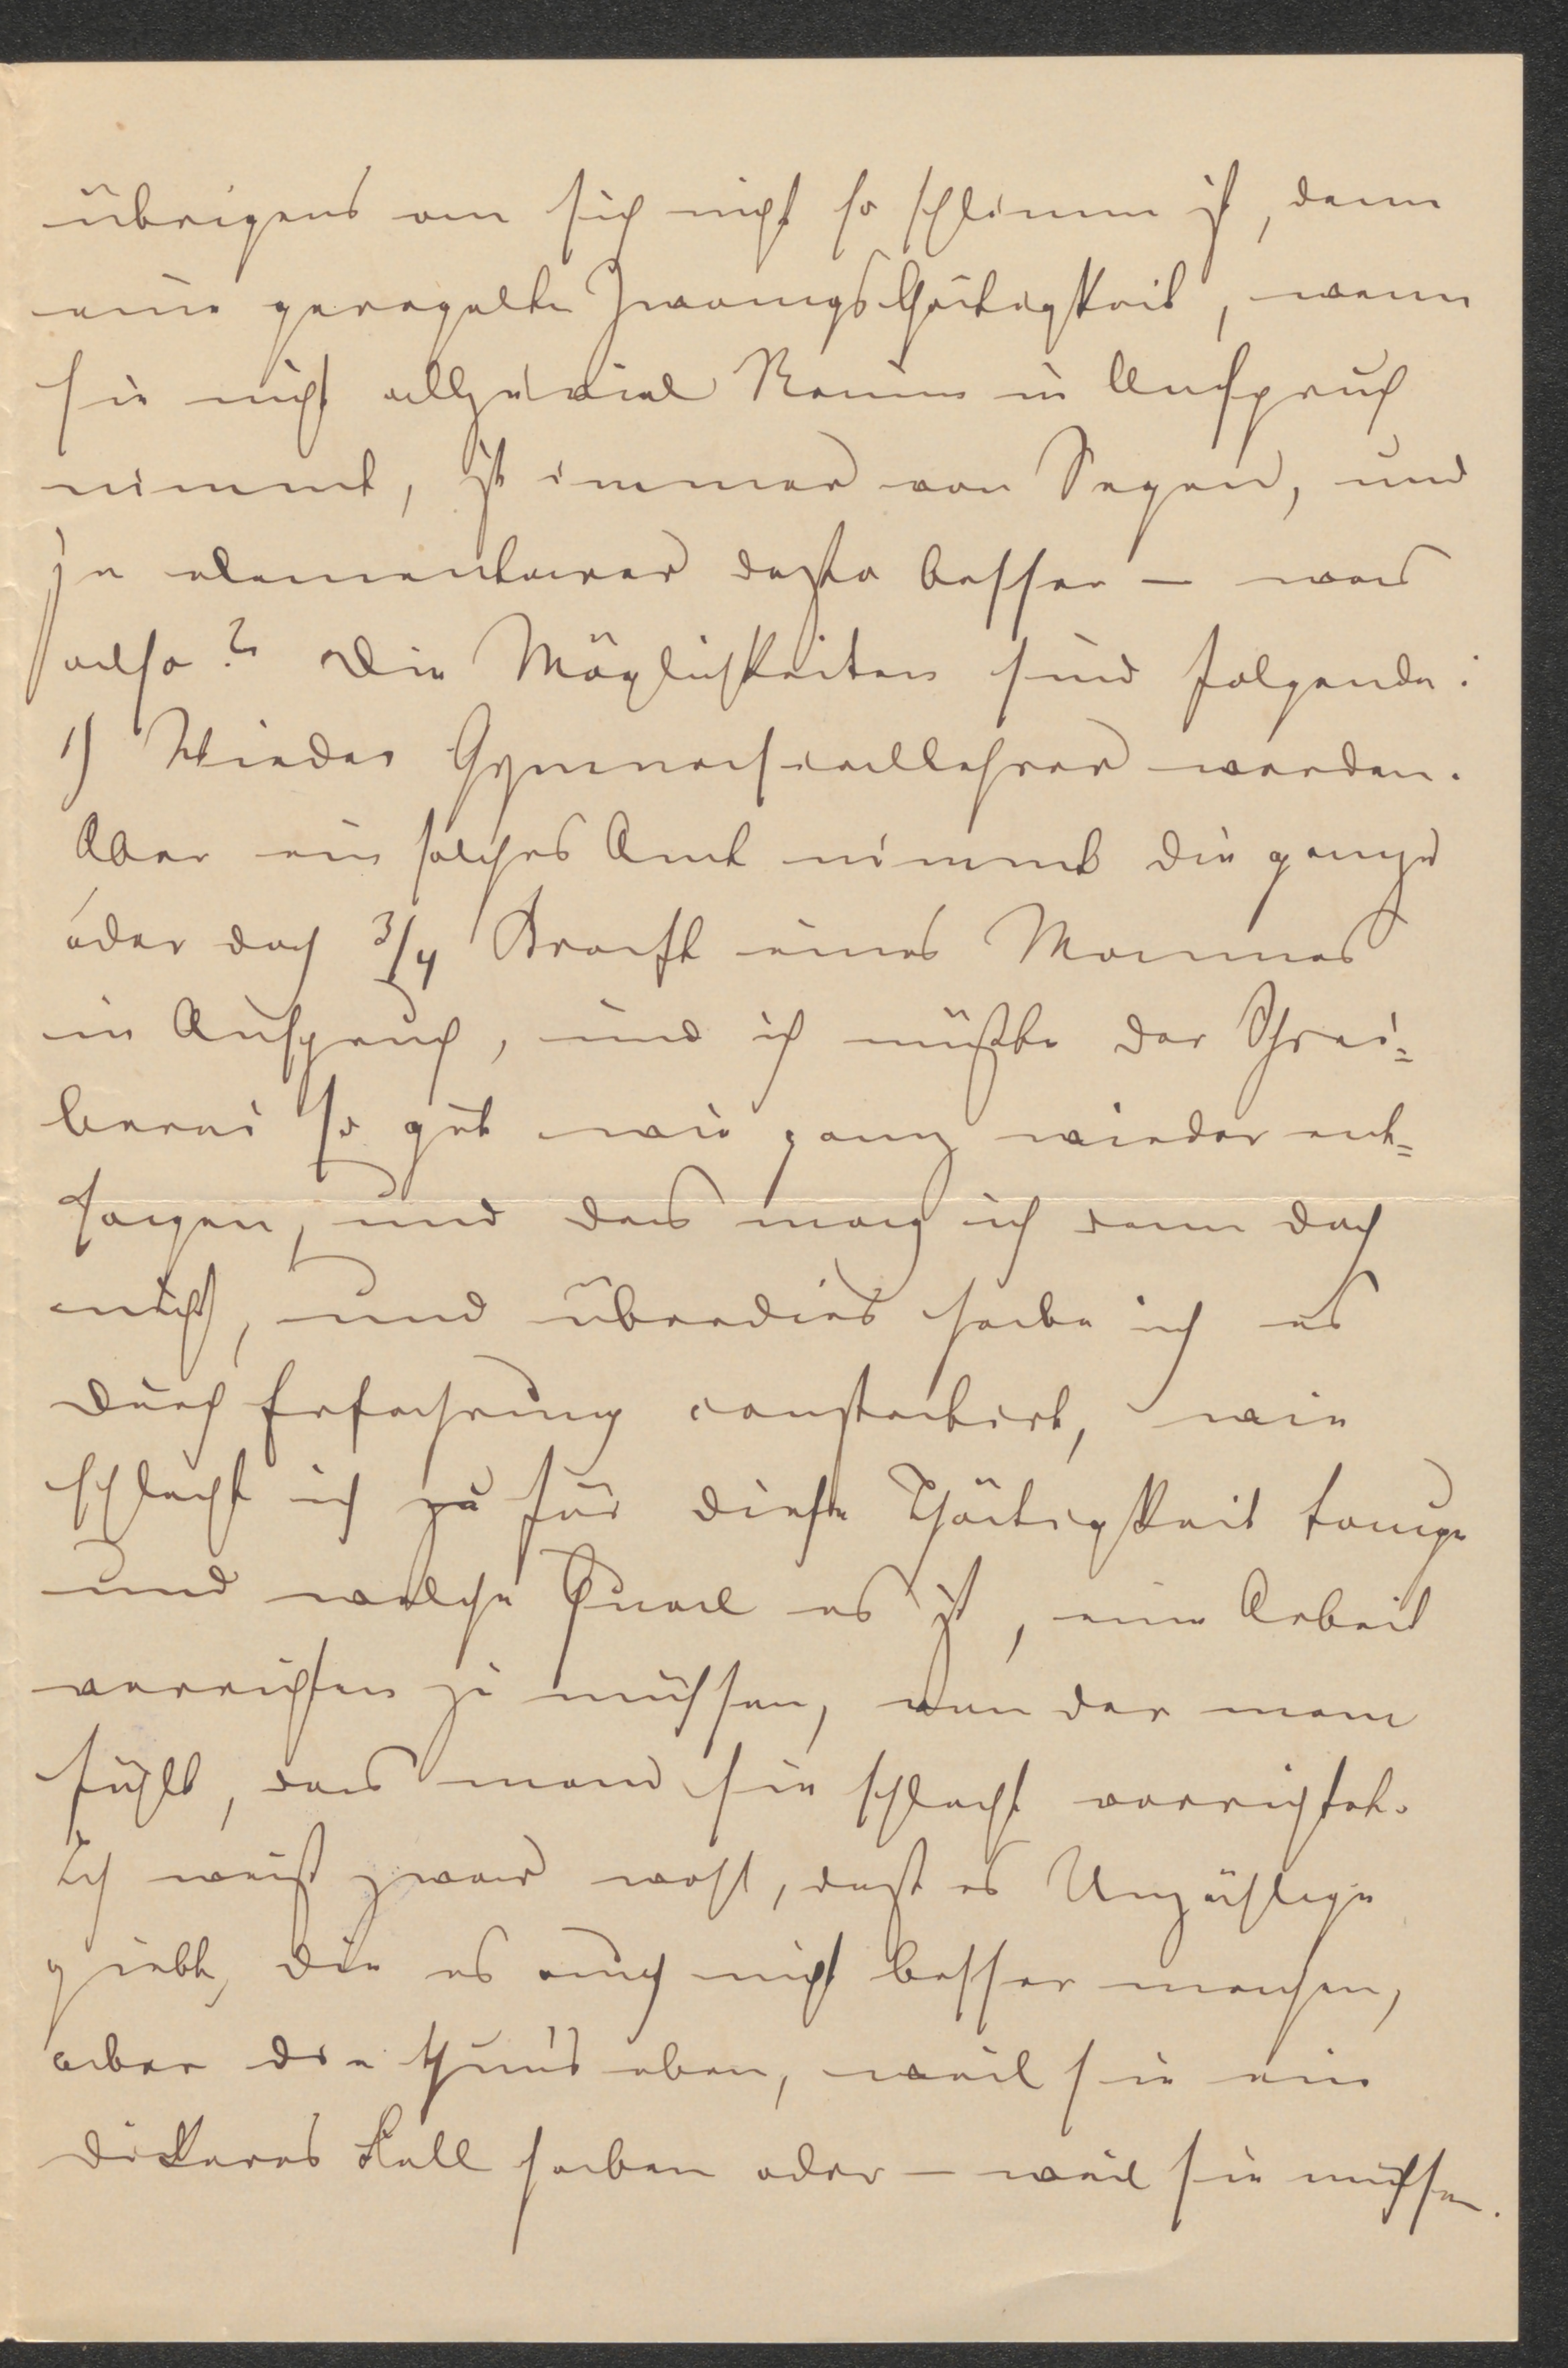 übrigens an sich nicht so schlimm ist, denn
eine geregelte Zwangsthätigkeit, wenn
sie nicht allzuviel Raum in Anspruch
nimmt, ist immer von Segen, und
je elementarer desto besser – was
also? Die Möglichkeiten sind folgende:
1) Wieder Gymnasiallehrer werden.
Aber ein solches Amt nimmt die ganze
oder doch 3/4 Kraft eines Mannes
in Anspruch, und ich müßte der Schrei=
berei so gut wie ganz wieder ent=
sagen, und das mag ich denn doch
nicht, und überdies habe ich es
durch Erfahrung constatirt, wie
schlecht ich zu für diese Thätigkeit tauge
und welche Qual es ist, eine Arbeit
verrichten zu müssen, von der man
fühlt, das man sie schlecht verrichtet.
Ich weiß zwar wohl, daß es Unzählige
giebt, die es auch nicht besser machen,
aber die thun's eben, weil sie ein
dickeres Fell haben oder – weil sie müssen.